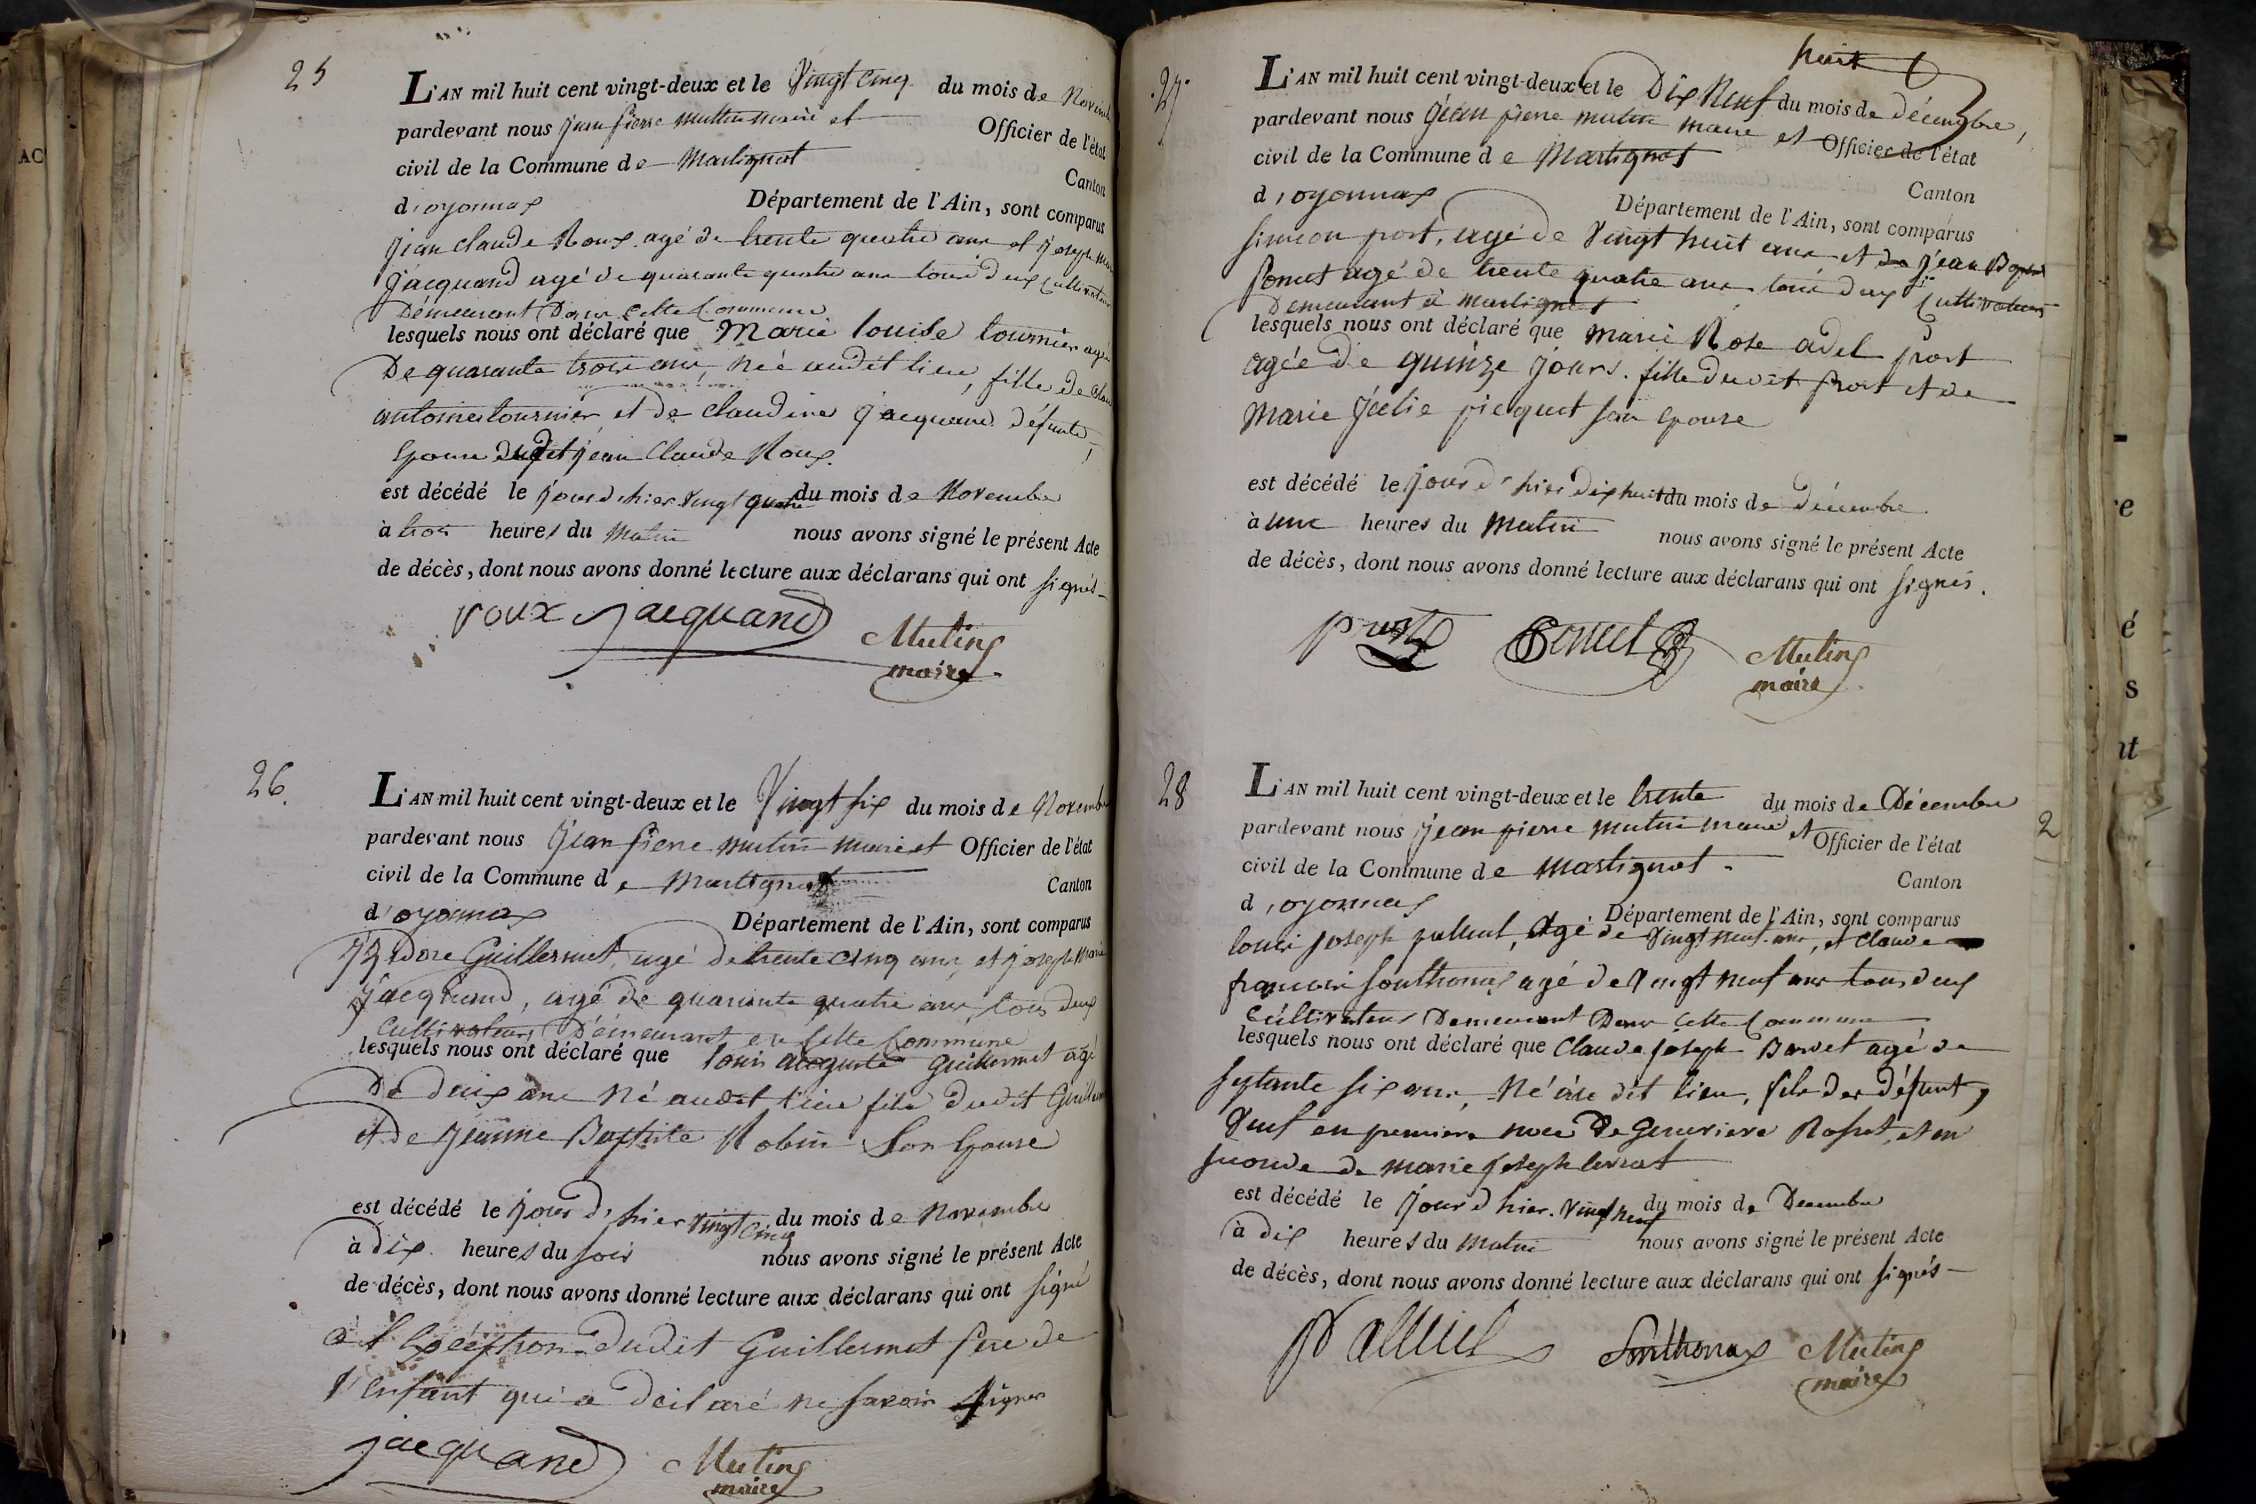 AC
25
L'AN mil huit cent vingt-deux et le Vingt cinq du mois de Novemb
pardevant nous jean pierre mutin maire et Officier de l'état
civil de la Commune de Martignat Canton
d'oyonnax Département de l'Ain, sont comparus
jean claude Roux agé de trente quatre ans et joseph
jacquand agé de quarante quatre ans tous deux Cultivateurs
Démeurant Dans Cette Commune
lesquels nous ont déclaré que Marie louise tournier agée
De quarante trois ans, née audit lieu, fille de
antoine tournier et de claudine jacquand défunte,
Epouse dudit jean Claude Roux.
est décédé le jour d'hier vingt quatre du mois de Novembre
à trois heures du Matin nous avons signé le présent Acte
de décès, dont nous avons donné lecture aux déclarans qui ont signés
roux jacquand Mutin
maire
26.
L'AN mil huit cent vingt-deux et le Vingt six du mois de Novembre
pardevant nous jean pierre mutin maire et Officier de l'état
civil de la Commune de Martignat Canton
d'oyonnax Département de l'Ain, sont comparus
jzidore Guillermet, agé de trente cinq ans, et joseph Marie
jacquand, agé de quarante quatre ans, tous deux
Cultivateurs Démeurant en Cette Commune
lesquels nous ont déclaré que louis auguste Guillermet agé
De deux ans Né audit lieu fils dudit Guillerm
et de jeanne Baptiste Robin Son Epouse
est décédé le jour d'hier vingt cinq du mois de Novembre
à dix heures du soir nous avons signé le présent Acte
de décès, dont nous avons donné lecture aux déclarans qui ont signé
a l'Exception dudit Guillermet pere de
l'Enfant qui a déclaré ne savoir signer
jacquand Mutin
maire
27.
huit
L'AN mil huit cent vingt-deux et le Dix Neuf du mois de décembre,
pardevant nous jean pierre mutin maire et Officier de l'état
civil de la Commune de Martignat Canton
d'oyonnax Département de l'Ain, sont comparus
simeon prost, agé de Vingt huit ans et de jean
Poncet agé de trente quatre ans tous deux Cultivateurs
Demeurant à Martignat
lesquels nous ont déclaré que Marie Rose adel prost
agée De quinze jours. fille dudit prost et de
Marie julie picquet son epouse
est décédé le jour d'hier dix huit du mois de décembre
à une heures du Matin nous avons signé le présent Acte
de décès, dont nous avons donné lecture aux déclarans qui ont signés.
prost Poncet Mutin
maire
28
L'AN mil huit cent vingt-deux et le trente du mois de Décembre
pardevant nous jean pierre mutin maire et Officier de l'état
civil de la Commune de Martignat Canton
d'oyonnax Département de l'Ain, sont comparus
louis joseph agé de Vingt neuf ans, et Claude
françois sonthonax agé de Vingt Neuf ans tous deux
Cultivateurs Demeurant Dans Cette Commune
lesquels nous ont déclaré que Claude joseph agé de
septante six ans, Né au dit lieu, fils des défunt,
Veuf en premiere noce De Genevieve et en
seconde de marie joseph
est décédé le jour d'hier Vingt neuf du mois de Decembre
à dix heures du Matin nous avons signé le présent Acte
de décès, dont nous avons donné lecture aux déclarans qui ont signés
Sonthonax Mutin
maire
2
e
é
s
nt